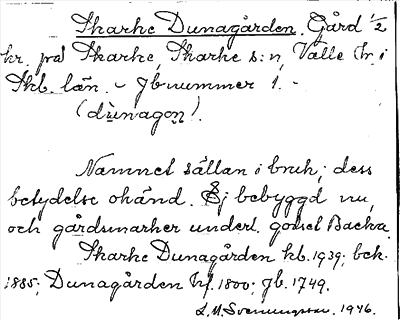 Skarke Dunagården. Gård 1/2
kr. på Skarke, Skarke s:n, Valle hr. i
Skb. län. - Jb nummer 1. -
(dùnagọṇ).
Namnet sällan i bruk; dess
betydelse okänd. Ej bebyggd nu,
och gårdsmarker underl. godset Backa.
Skarke Dunagården kb. 1939; bek.
1885; Dunagården hfl. 1800; Jb. 1749.
L. M. Svenungsson. 1946.